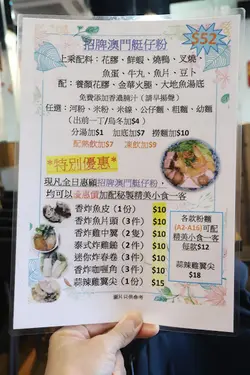 招牌澳門艇仔粉
$52
上乘配料：花膠、鮮蝦、燒鴨、叉燒、
魚蛋、牛丸、魚片、豆卜
配：養顏花膠、金華火腿、大地魚湯底
免費添加香濃腩汁 (請早揚聲)
任選：河粉、米粉、米線、公仔麵、粗麵、幼麵
(出前一丁/烏冬加$4)
分湯加$1 加底加$7 撈麵加$10
配熱飲加$7 凍飲加$9
*特別優惠*
現凡全日惠顧招牌澳門艇仔粉，
均可以優惠價加配秘製精美小食一客
香炸魚皮 (1份) $10
香炸魚片頭 (3件) $10
香炸雞中翼 (2隻) $10
泰式雞翅 (2件) $10
迷你炸春卷 (3件) $10
香炸咖喱角 (3件) $10
蒜辣雞翼尖 (1份) $15
各款粉麵
(A2-A16)可配
精美小食一客
每款$12
蒜辣雞翼尖
$18
圖片只供參考